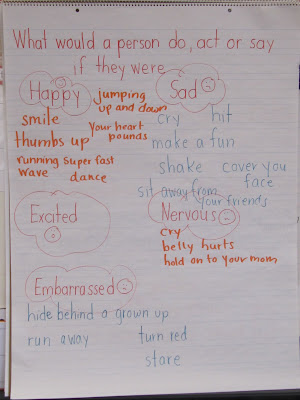 What would a person do, act or say
if they were
Happy
jumping
up and down
smile
your heart
pounds
thumbs up
running super fast
wave
dance
Sad
cry
hit
make a fun
shake
cover you
face
sit away from
your friends
Excited
Nervous
cry
belly hurts
hold on to your mom
Embarrassed
hide behind a grown up
run away
turn red
stare